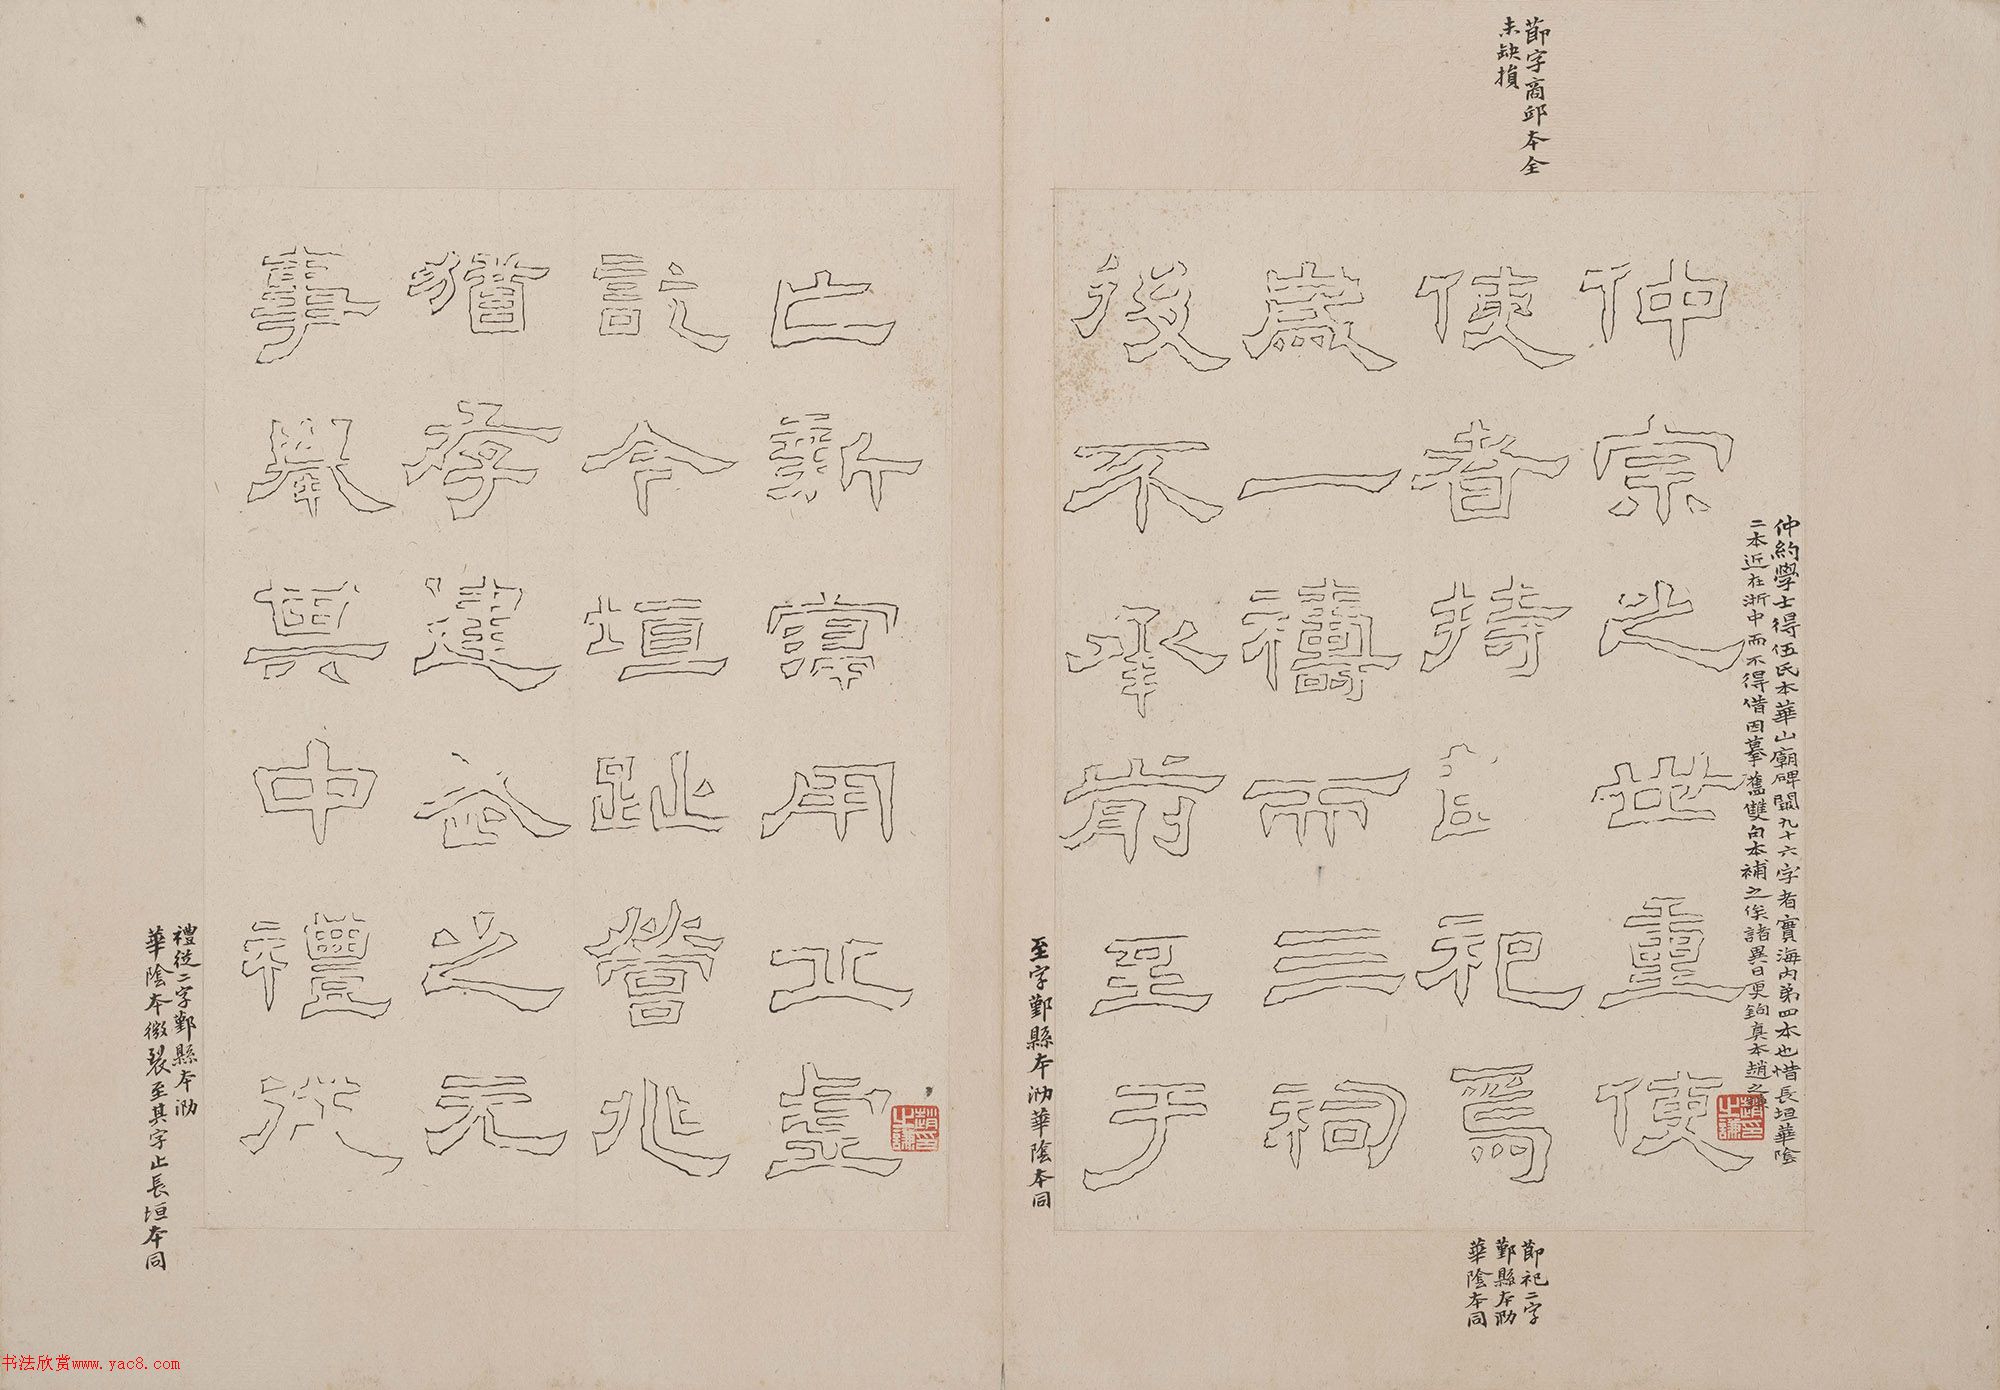 節字商邱本全
未缺損
仲約學士得伍氏本華山廟碑闕九十六字者實海內弟四本也惜長垣華陰
二本近在浙中而不得借因摹舊雙句本補之俟諸異日更鉤真本趙之謙
仲宗之世重使
使者持節祀焉
歲一禱而三祠
後不承前至于
節祀二字
鄞縣本泐
華陰本同
至字鄞縣本泐華陰本同
亡新寖用丘虛
訖今垣趾營兆
猶存建武之元
事舉其中禮從
禮從二字鄞縣本泐
華陰本微裂至其字止長垣本同
趙之謙印
趙之謙印
书法欣赏www.yac8.com